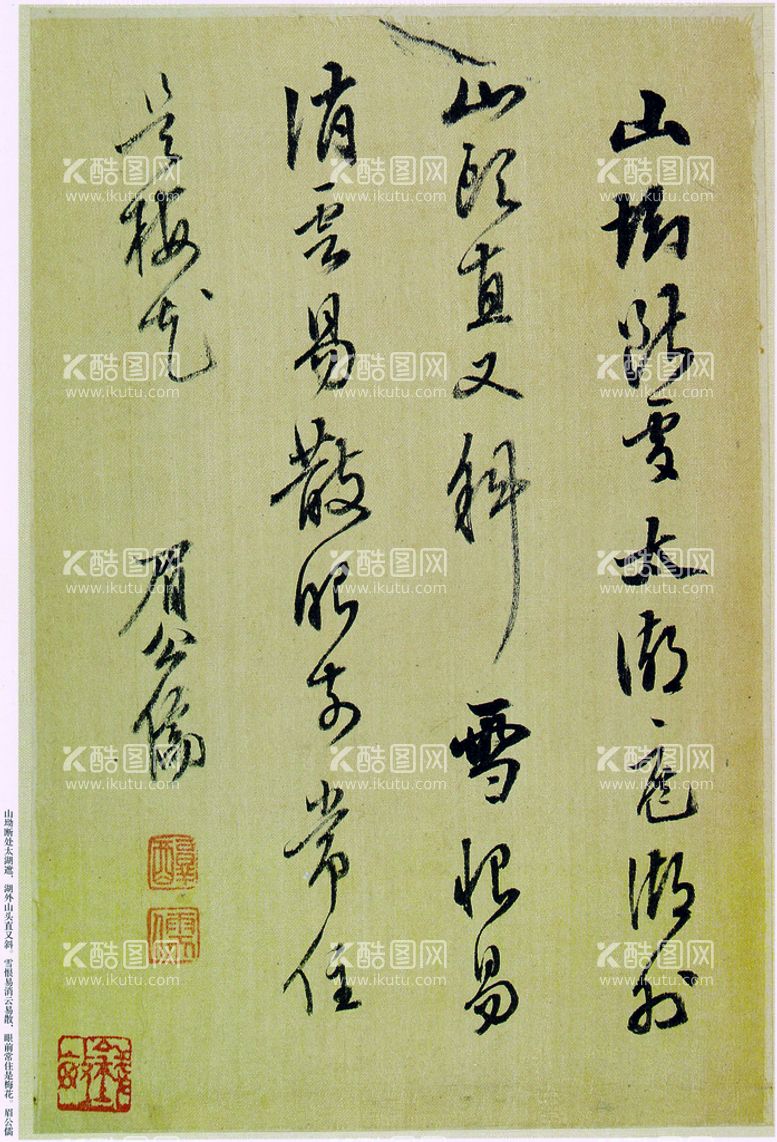 山坳断處太湖遮湖外
山頭直又斜雪恨易
消雲易散眼前常住
是梅花
眉公儒
山坳断处太湖遮，湖外山头直又斜。雪恨易消云易散，眼前常住是梅花。眉公儒
酷图网
www.ikutu.com